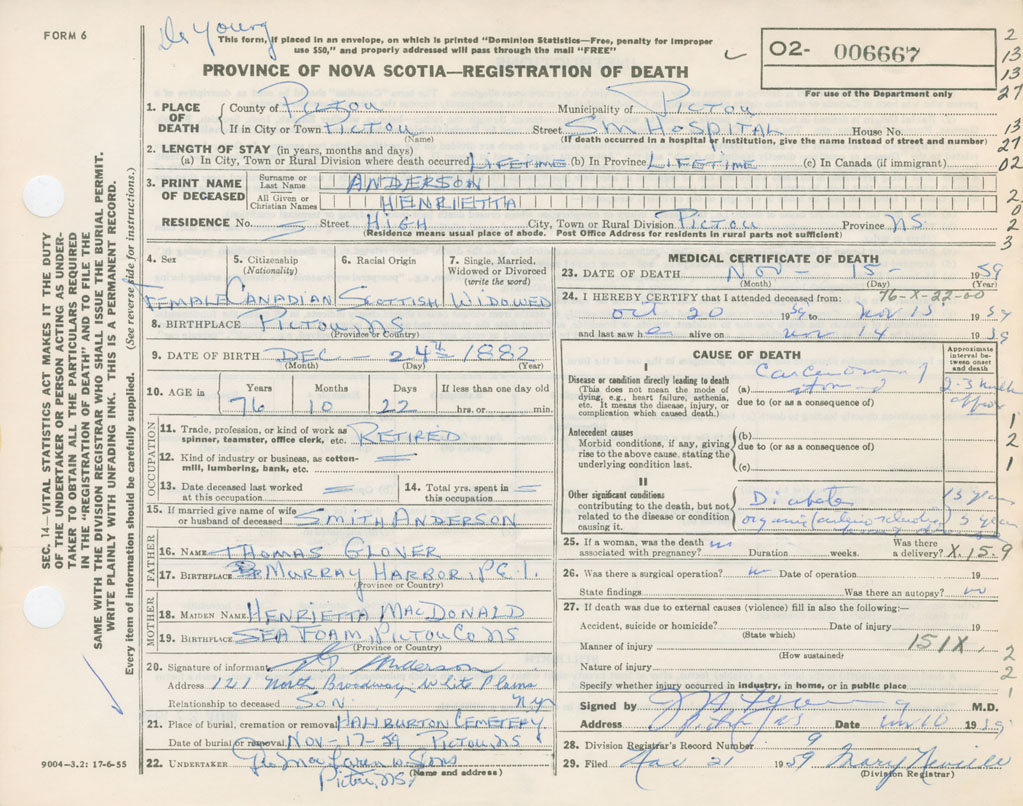 FORM 6
De Young
This form, if placed in an envelope, on which is printed "Dominion Statistics—Free, penalty for improper
use $50," and properly addressed will pass through the mail "FREE"
O2- 006667
For use of the Department only
PROVINCE OF NOVA SCOTIA—REGISTRATION OF DEATH
1. PLACE OF DEATH County of PICTOU Municipality of PICTOU
If in City or Town PICTOU Street SM HOSPITAL House No.
(Name) (If death occurred in a hospital or institution, give the name instead of street and number)
2. LENGTH OF STAY (in years, months and days)
(a) In City, Town or Rural Division where death occurred LIFETIME (b) In Province LIFETIME (c) In Canada (if immigrant)
3. PRINT NAME OF DECEASED Surname or Last Name ANDERSON
All Given or Christian Names HENRIETTA
RESIDENCE No. 5 Street HIGH City, Town or Rural Division PICTOU Province NS
(Residence means usual place of abode. Post Office Address for residents in rural parts not sufficient)
2
13
13
27
13
27
02
2
0
2
3
SEC. 14—VITAL STATISTICS ACT MAKES IT THE DUTY
OF THE UNDERTAKER OR PERSON ACTING AS UNDER-
TAKER TO OBTAIN ALL THE PARTICULARS REQUIRED
IN THE "REGISTRATION OF DEATH" AND TO FILE THE
SAME WITH THE DIVISION REGISTRAR WHO SHALL ISSUE THE BURIAL PERMIT.
WRITE PLAINLY WITH UNFADING INK. THIS IS A PERMANENT RECORD.
Every item of information should be carefully supplied. (See reverse side for instructions.)
4. Sex 5. Citizenship (Nationality) 6. Racial Origin 7. Single, Married, Widowed or Divorced (write the word)
FEMALE CANADIAN SCOTTISH WIDOWED
8. BIRTHPLACE PICTOU, NS
(Province or Country)
9. DATE OF BIRTH DEC — 24th 1882
(Month) (Day) (Year)
10. AGE in Years Months Days If less than one day old
76 10 22 hrs. or min.
OCCUPATION
11. Trade, profession, or kind of work as spinner, teamster, office clerk, etc. RETIRED
12. Kind of industry or business, as cotton-mill, lumbering, bank, etc.
13. Date deceased last worked at this occupation
14. Total yrs. spent in this occupation
15. If married give name of wife or husband of deceased SMITH ANDERSON
FATHER
16. NAME THOMAS GLOVER
17. BIRTHPLACE MURRAY HARBOR, P.E.I.
(Province or Country)
MOTHER
18. MAIDEN NAME HENRIETTA MACDONALD
19. BIRTHPLACE SEA FOAM, PICTOU CO NS
(Province or Country)
20. Signature of informant Anderson
Address 121 North Broadway White Plains
Relationship to deceased SON NY
21. Place of burial, cremation or removal HALIBURTON CEMETERY
Date of burial or removal NOV-17-59 PICTOU, NS
22. UNDERTAKER Sons
(Name and address)
Pictou, NS
9004—3,2: 17-6-55
MEDICAL CERTIFICATE OF DEATH
23. DATE OF DEATH NOV — 15 — 1959
(Month) (Day) (Year)
76-X-22-00
24. I HEREBY CERTIFY that I attended deceased from:
Oct 20 1959 to Nov 15 1959
and last saw her alive on Nov 14 1959
CAUSE OF DEATH
Approximate interval between onset and death
I
Disease or condition directly leading to death
(This does not mean the mode of dying, e.g., heart failure, asthenia, etc. It means the disease, injury, or complication which caused death.)
(a) Carcinoma of stomach
due to (or as a consequence of)
2-3 months approx
Antecedent causes
Morbid conditions, if any, giving rise to the above cause, stating the underlying condition last.
(b)
due to (or as a consequence of)
(c)
II
Other significant conditions
contributing to the death, but not related to the disease or condition causing it.
Diabetes 15 years
5 years
1
2
1
25. If a woman, was the death associated with pregnancy? no Duration weeks. Was there a delivery? X.15.9
26. Was there a surgical operation? no Date of operation 19
State findings Was there an autopsy? no
27. If death was due to external causes (violence) fill in also the following:—
Accident, suicide or homicide? Date of injury 19
(State which)
Manner of injury 151X
(How sustained)
Nature of injury
Specify whether injury occurred in industry, in home, or in public place
2
2
1
Signed by M.D.
Address Pictou NS Date 1959
28. Division Registrar's Record Number 9
29. Filed Nov 21 1959 Mary
(Division Registrar)